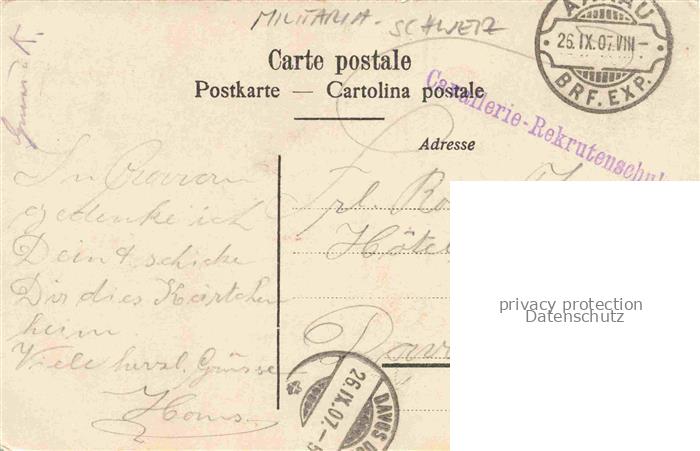 MILITARIA - SCHWEIZ
AARAU
26.IX.07.VIII-
BRF. EXP.
Carte postale
Postkarte — Cartolina postale
Cavallerie-Rekrutenschul
Adresse
In
gedenke ich
Dein & schicke
Dir dies Kärtchen
heim
Viele herzl. Grüsse
Hans
Frl.
Hôtel
Dav
26.IX.07.-5
DAVOS
privacy protection
Datenschutz